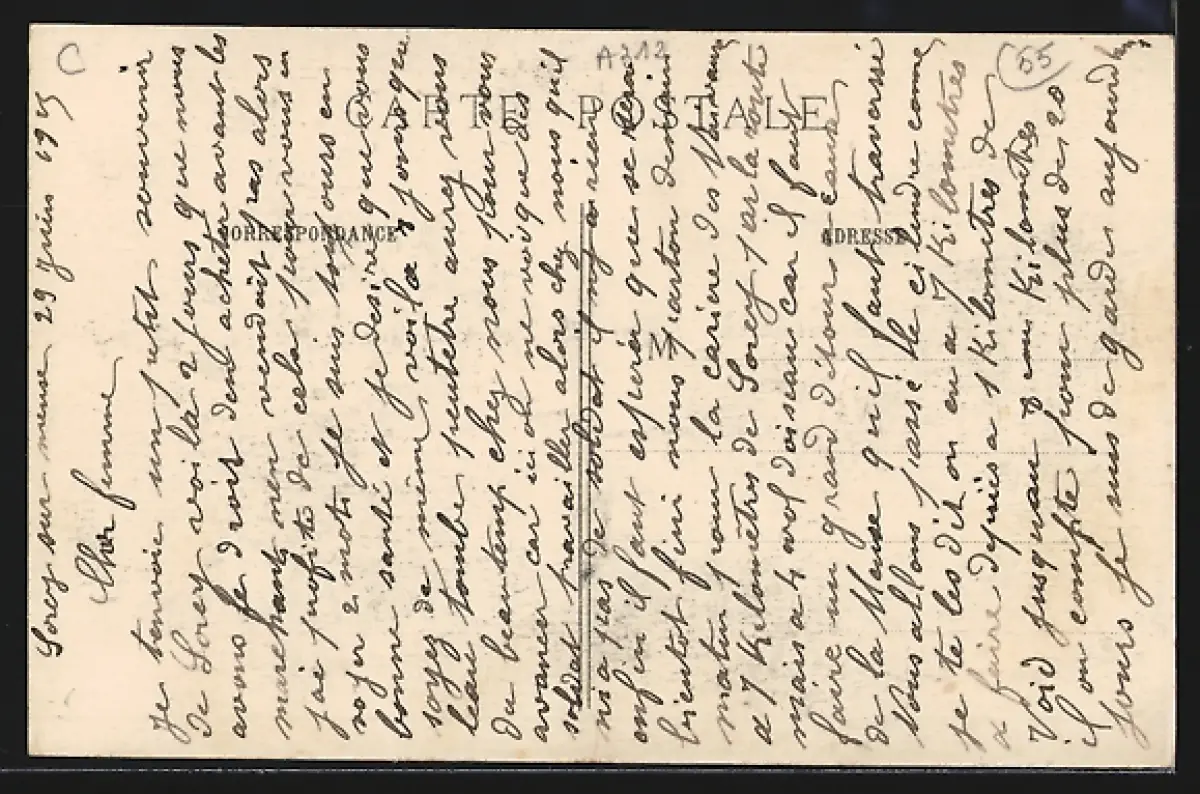 Sorcy sur meuse 29 Juin 1915
Cher femme
Je tenvoie un petit souvenir
de Sorcy voila 2 jours que nous
avons le droit den acheter avant les
marchants nen vendait pas alors
jai profité de cela pour vous en
voyer 2 mots je suis toujours en
bonne santé et je desire que vous
soyez de même voila 3 jours que
leau tombe peutetre aurez vous
du beautemp chez nous pour vous
avancer car ici on ne voi que des
soldat travailler alors chez nous qu'il
ni a pas de soldat il ny a rien
enfin il faut esperer que se sera
bientot fini nous partons demain
matin pour la cariere des
a 7 Kilomètres de Sorcy par la route
mais a 4 a vol doiseau car il faut
faire un grand détour cause
de la Meuse qu'il faut traversé
Nous allons passé le cilindre comme
je te les dit on en a 7 Kilomètres
a faire depuis a Kilomètres de
Void jusquau Kilomètres
il on compte pour plus de 20
jours je suis de garde aujourd'hui
CARTE POSTALE
CORRESPONDANCE
ADRESSE
M
C
A212
55